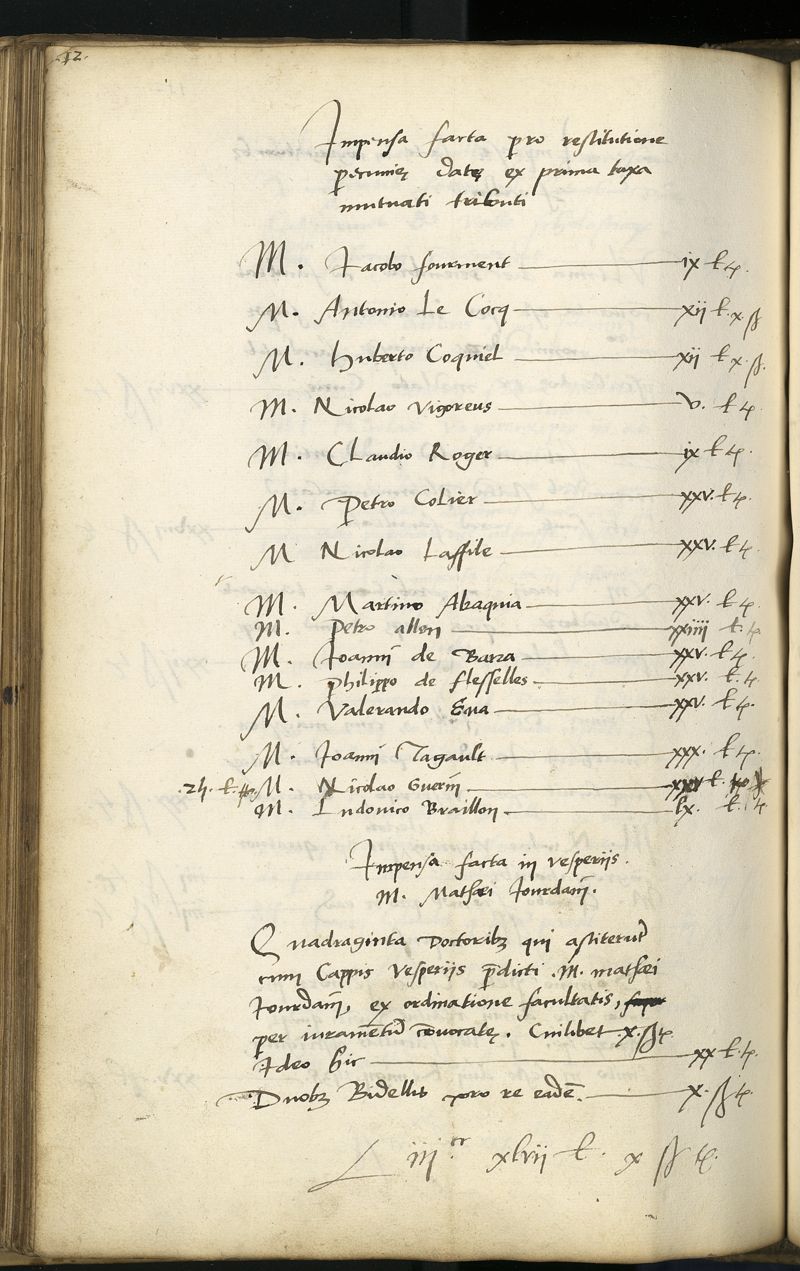 42.
Impensa facta pro restitutione
pecunię datę ex prima taxa
mutuati tributi
M. Iacobo fourment ix ł t.
M. Antonio Le Cocq xii ł. x ß
M. Huberto Coquiel xii ł x ß.
M. Nicolao Vigoreus v. ł t.
M. Claudio Roger ix ł t.
M. Petro Colier xxv. ł t.
M Nicolao Laffile xxv. ł t.
M. Martino Akaquia xxv. ł t.
M. Petro allen xxiiii ł. t.
M. Ioanni de Barra xxv. ł t.
M. Philippo de flesselles xxv. ł. t.
M. Valerando Eua xxv. ł t.
M. Ioanni Tagault xxx. ł t.
.24. ł. M. Nicolao Guerin ł.
M. Ludovico Braillon lx. ł. t.
Impensa facta in vesperiis.
M. Mathæi Iourdani.
Quadraginta Doctoribꝫ qui astiterūt
cum Cappis Vesperiis p̄dicti .M. mathæi
Iourdani, ex ordinatione facultatis,
per iuramētū cōvocatę. Cuilibet .x. ß t.
Ideo hic xx ł. t.
Duobꝫ Bidellis pro re eadē. x. ß t.
iij.cr xlvii ł. x ß t.